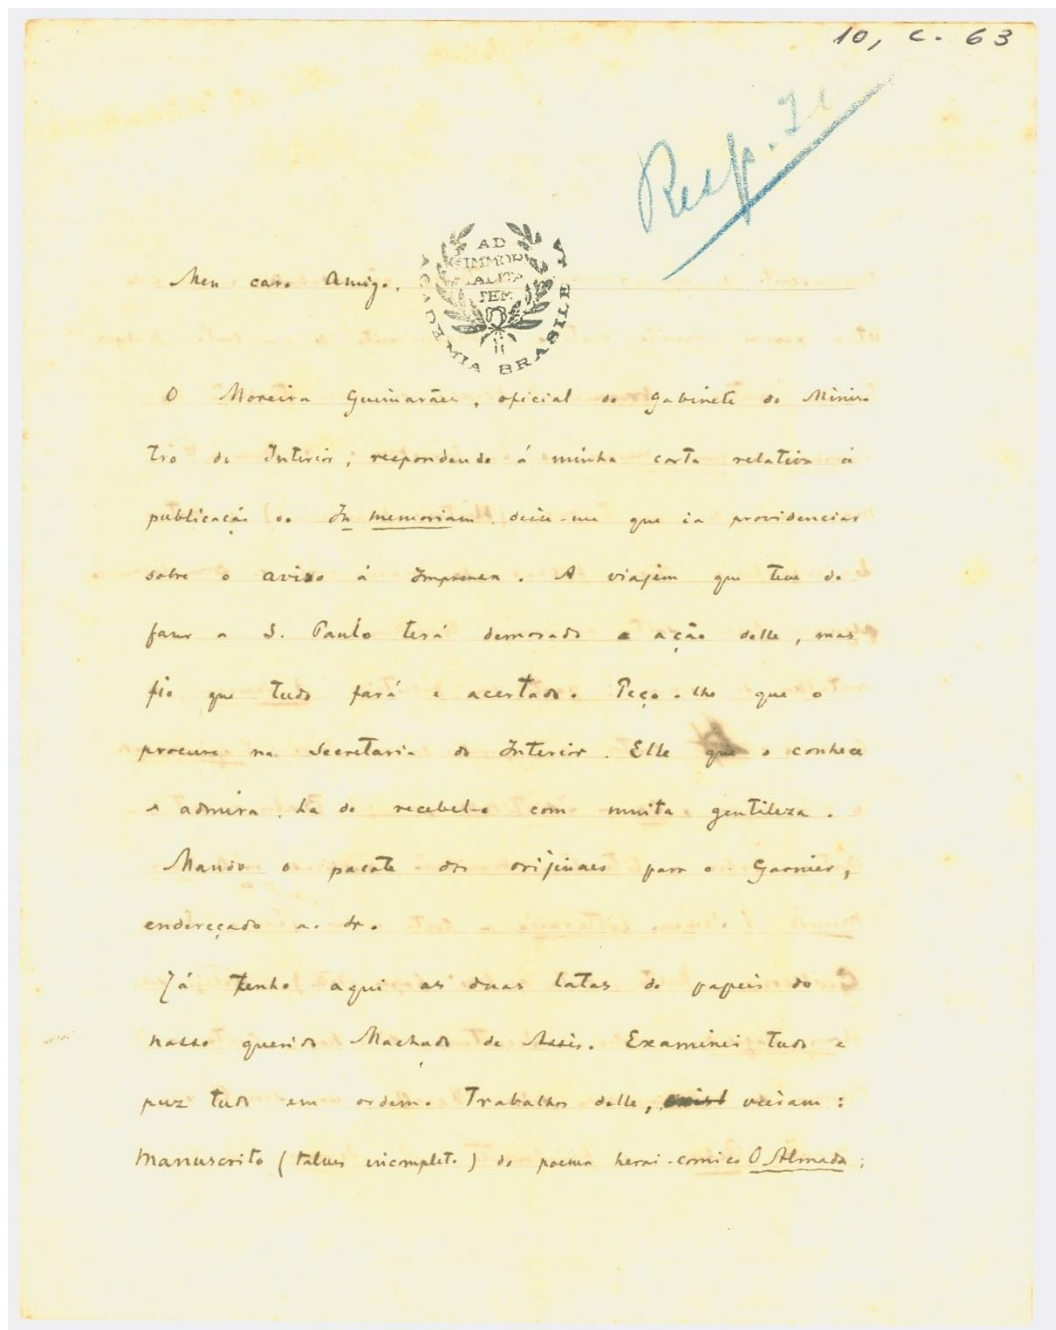 10, c. 63
Resp.
AD
IMMOR
TALITA
TEM
ACADEMIA BRASILE
Meu caro Amigo,
O Moreira Guimarães, oficial do gabinete do Minis-
tro do Interior, respondendo á minha carta relativa á
publicação do In memoriam disse-me que ia providenciar
sobre o aviso á Imprensa. A viajem que teve de
fazer a S. Paulo terá demorado a ação delle, mas
fio que tudo fará e acertado. Peço-lhe que o
procure na Secretaria do Interior. Elle que o conhece
e admira ha de recebel-o com muita gentileza.
Mando o pacote dos orijinaes para o Garnier,
endereçado ao sr.
Já tenho aqui as duas latas de papeis do
nosso querido Machado de Assis. Examinei tudo e
puz tudo em ordem. Trabalhos delle, vieram:
Manuscrito (talves incompleto) do poema heroi-comico O Almada;